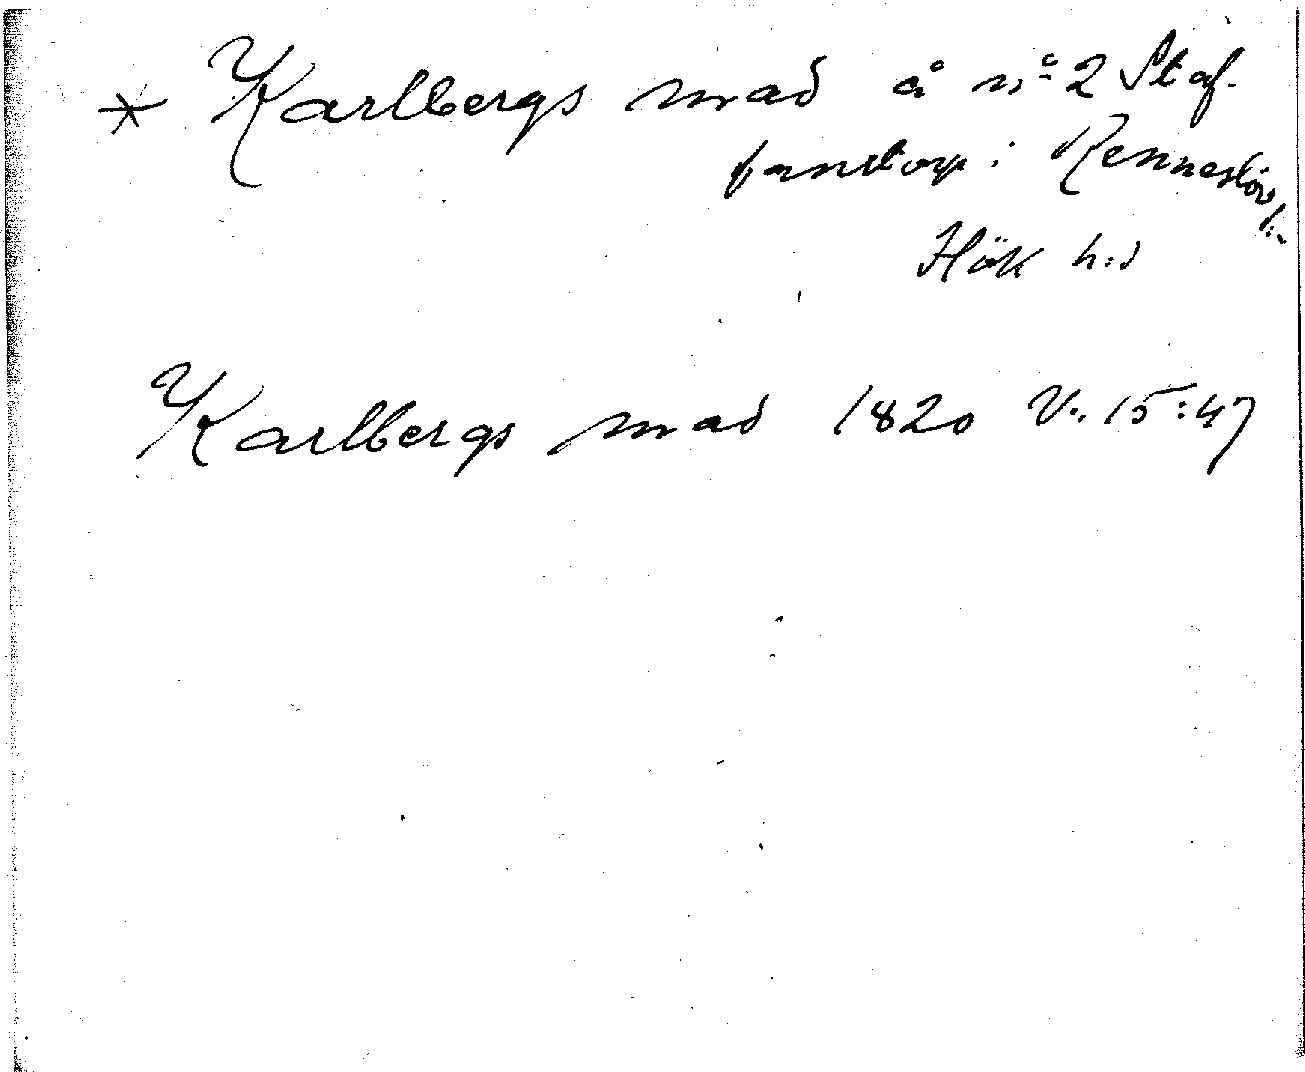 * Karlbergs mad å n:o 2 Staf-
fanstorp i Renneslövs s:n
Höks h:d
Karlbergs mad 1820 V. 15:47